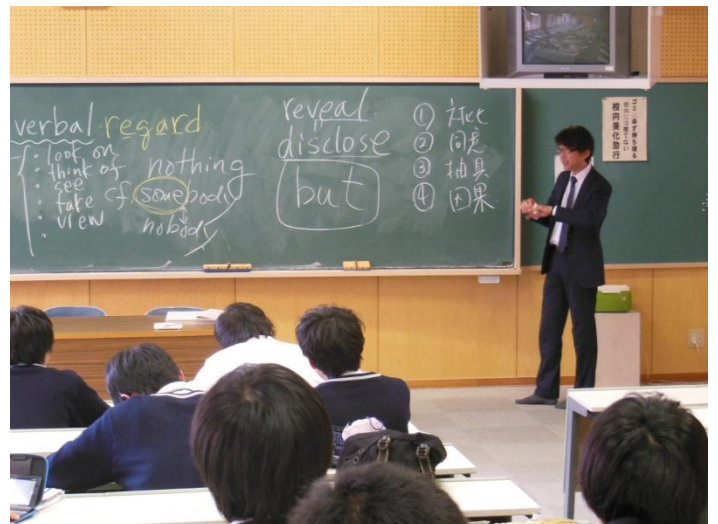 verbal regard
look on
think of
see
take
view
nothing
cf. somebody
nobody
reveal
disclose
but
① 対比
② 同意
③ 抽具
④ 因果
ゴミは必ず持ち帰る
校内にゴミ捨てない
校内美化励行